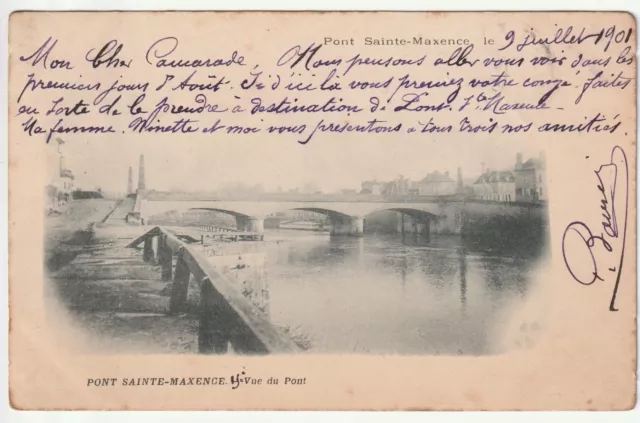 Pont Sainte-Maxence, le 9 juillet 1901
Mon Cher Camarade, Nous pensons aller vous voir dans les
premiers jours d'Août. Si d'ici là vous preniez votre congé, faites
en sorte de le prendre à destination de Pont. Ste Maxence.
Ma femme, Ninette et moi vous présentons à tous trois nos amitiés,
PONT SAINTE-MAXENCE. - Vue du Pont